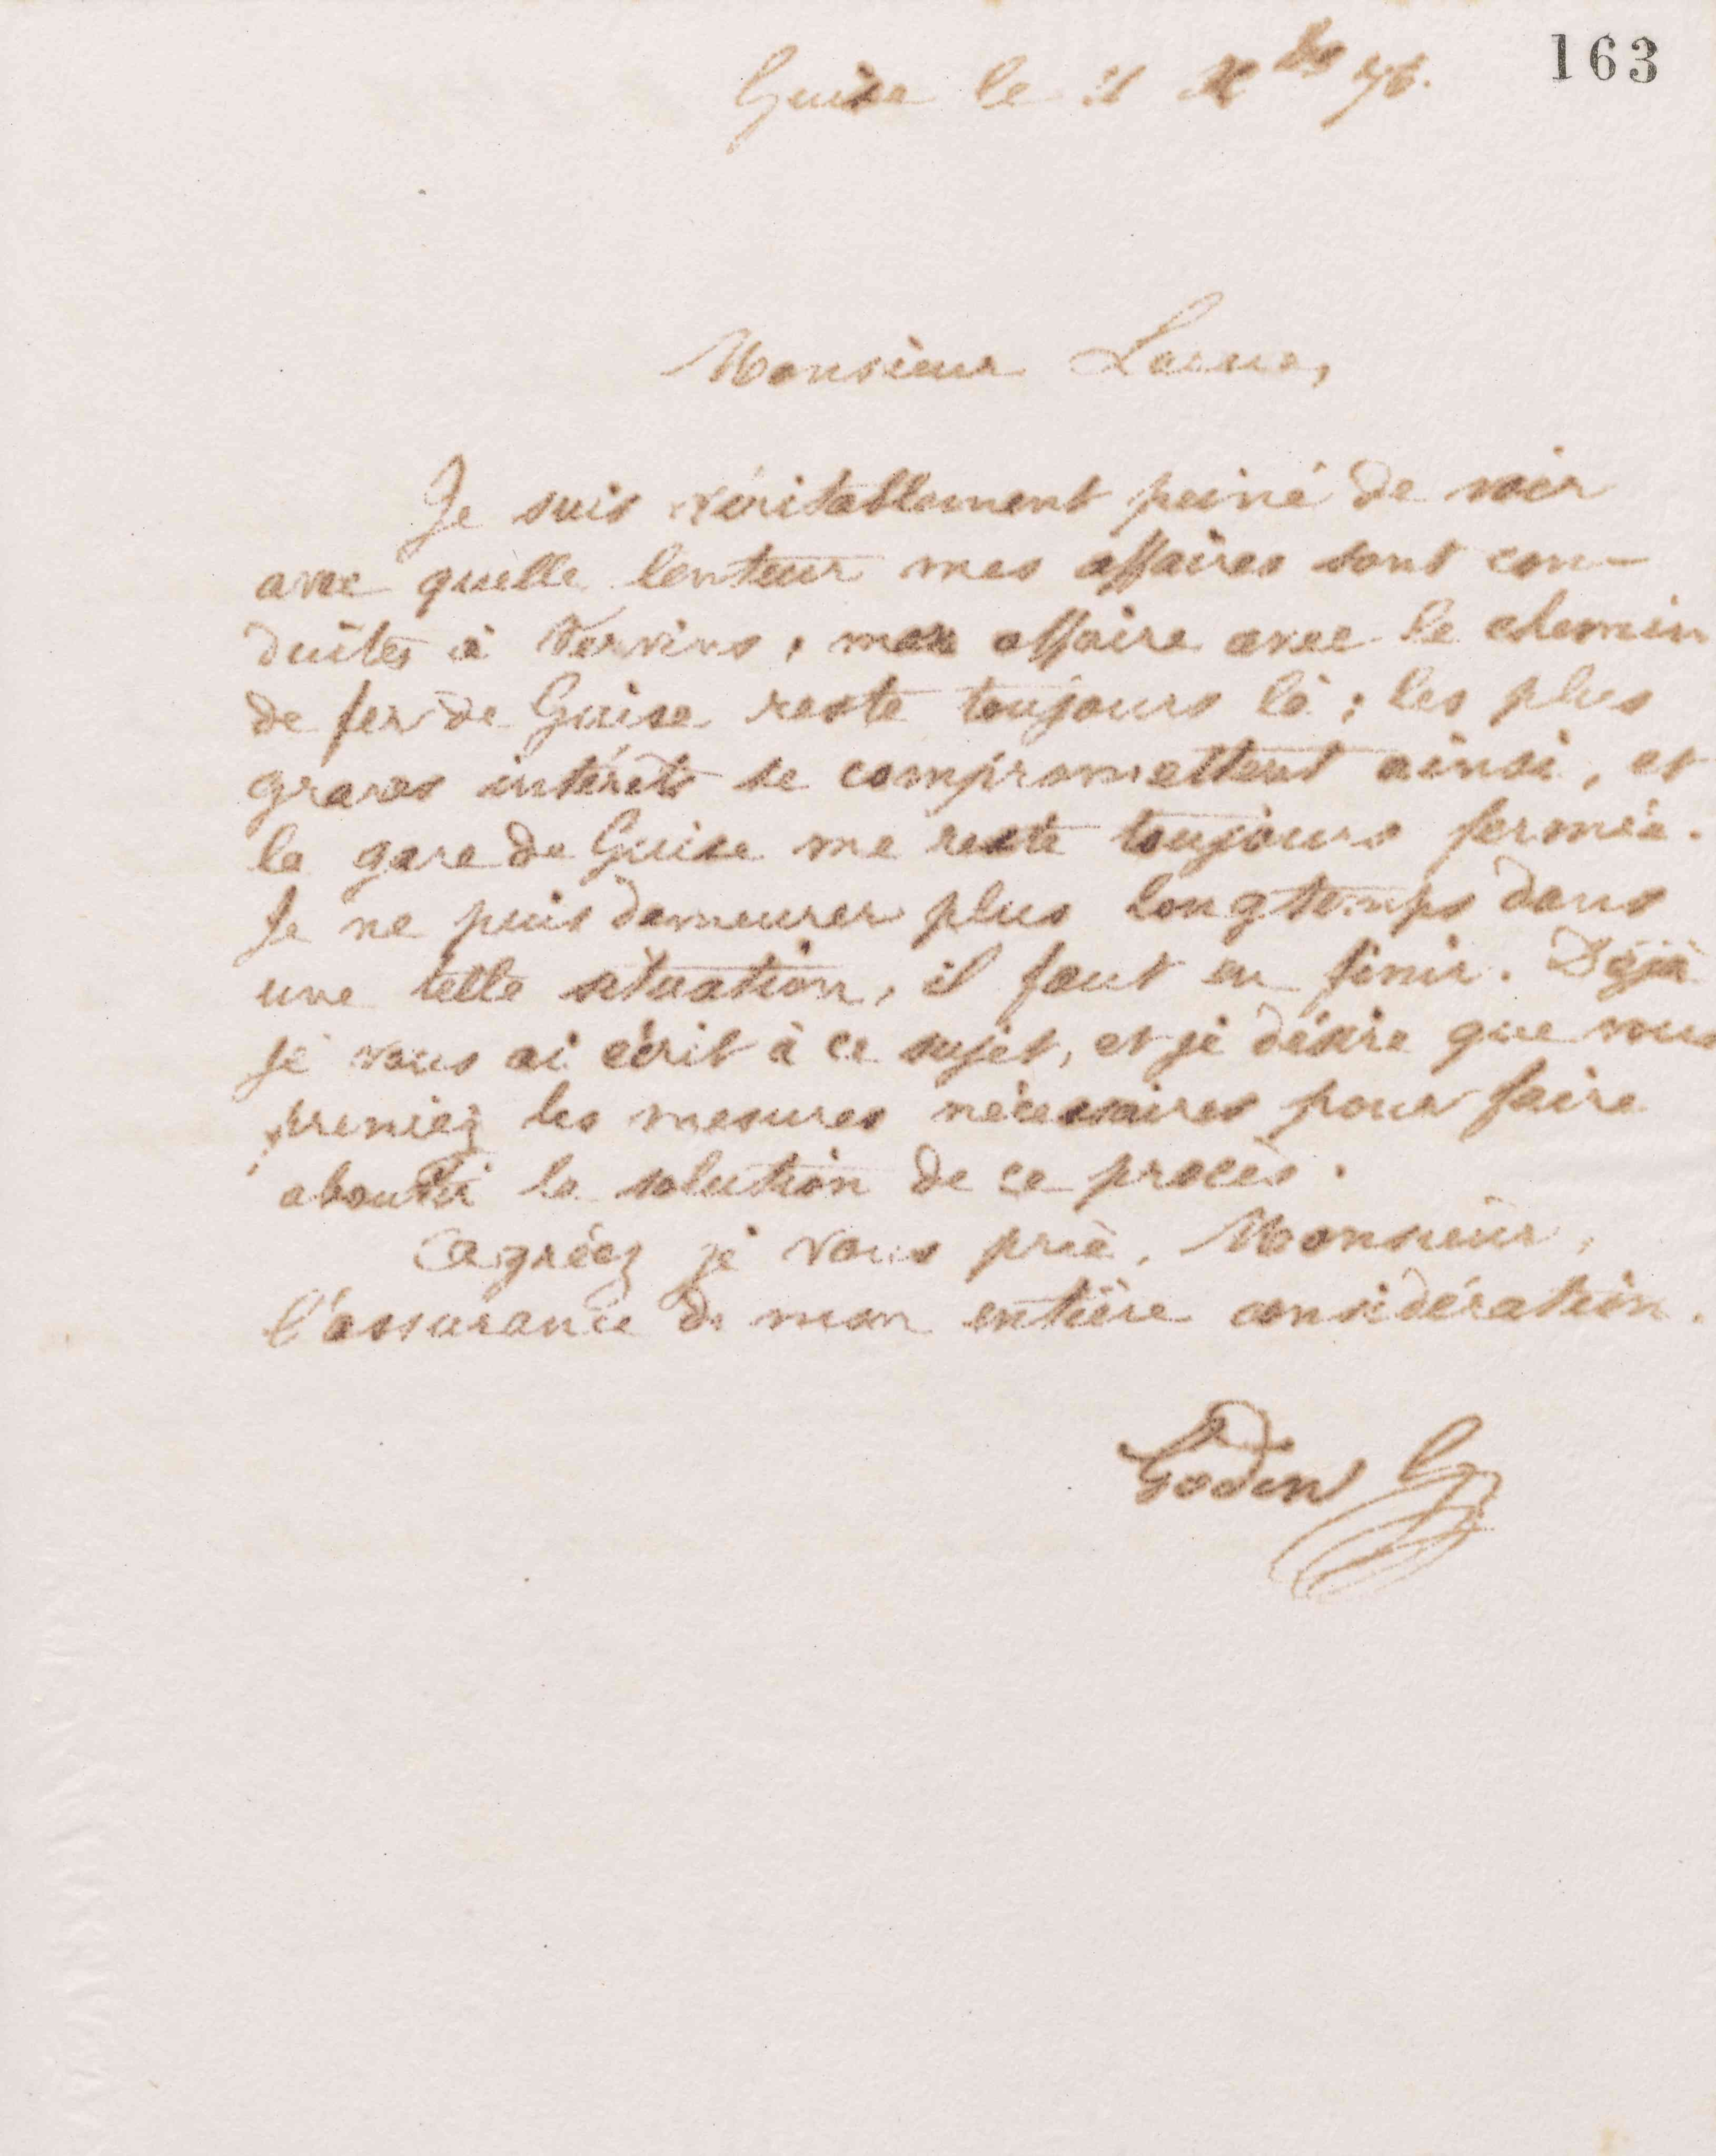 163
Guise le 21 Xbre 76.
Monsieur
Je suis véritablement peiné de voir
avec quelle lenteur mes affaires sont con-
duites à Vervins, mon affaire avec le chemin
de fer de Guise reste toujours là ; les plus
graves intérêts se compromettent ainsi, et
la gare de Guise me reste toujours fermée.
Je ne puis demeurer plus longtemps dans
une telle situation, il faut en finir. Déjà
je vous ai écrit à ce sujet, et je désire que vous
preniez les mesures nécessaires pour faire
aboutir la solution de ce procès.
Agréez je vous prie, Monsieur,
l'assurance de mon entière considération.
Godin